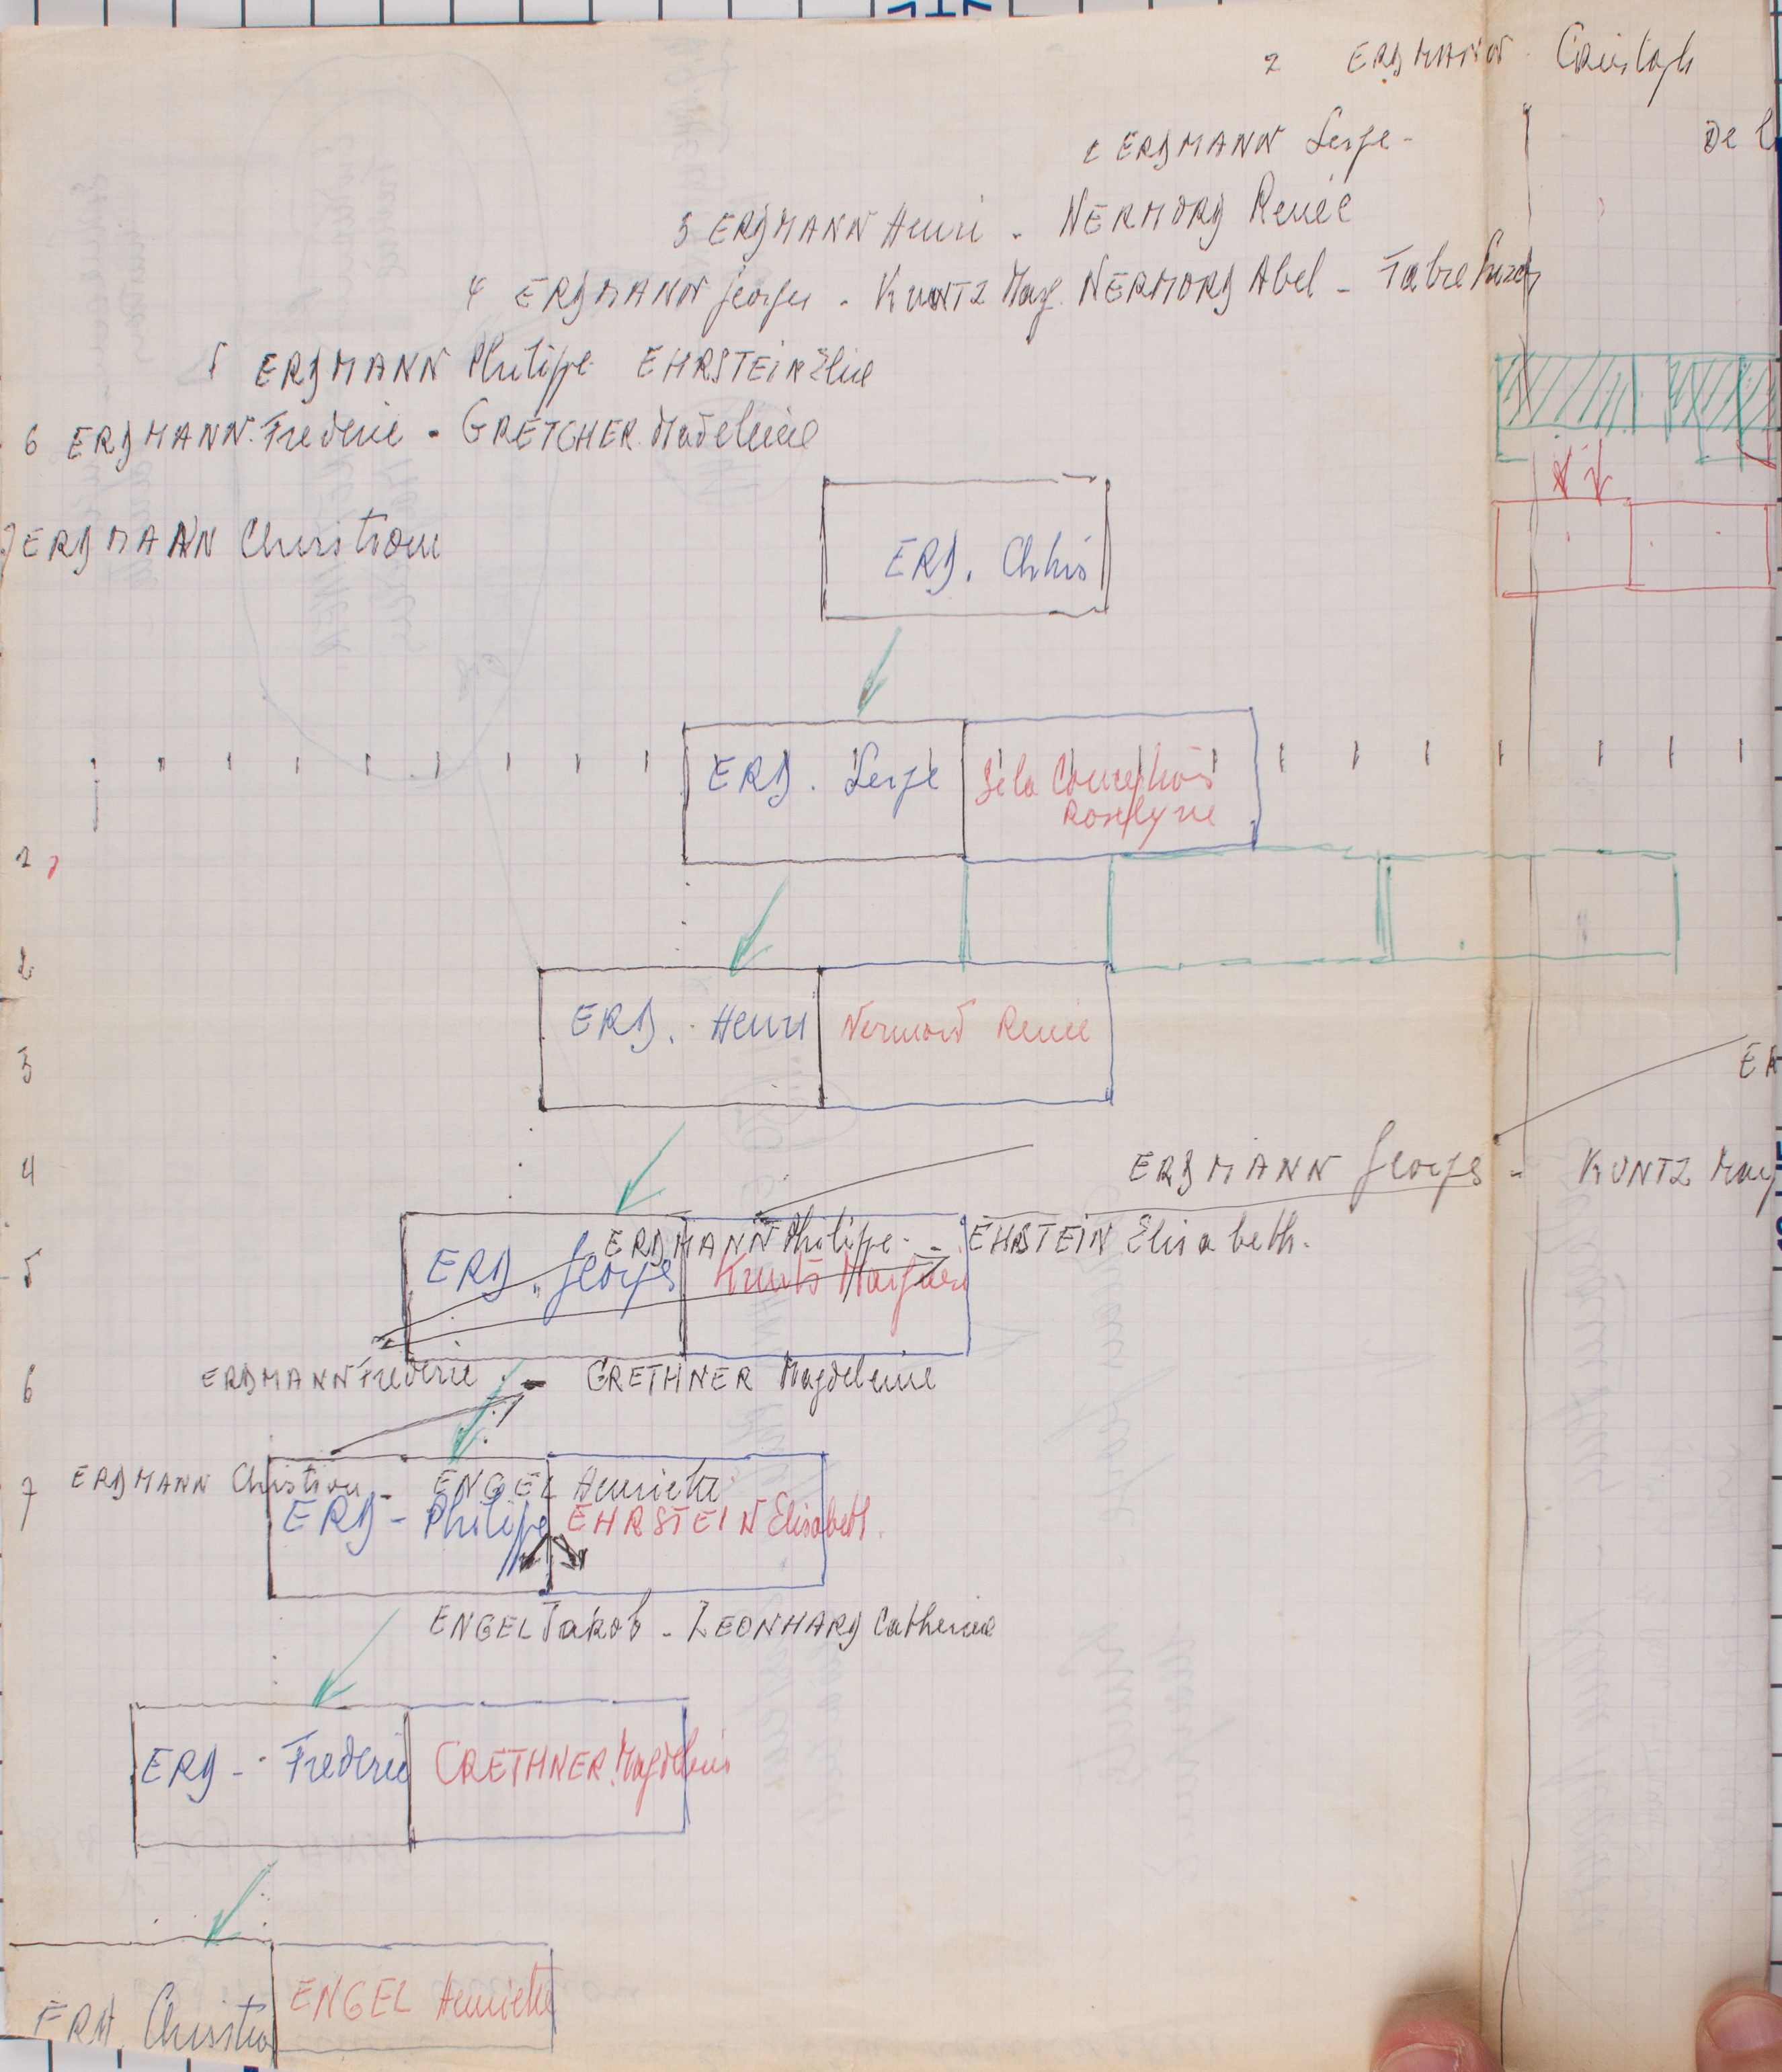 2 ERDMANN Cristoph
1 ERDMANN Serge -
De l
3 ERDMANN Henri - NERMORD Renée
4 ERDMANN Georges - KUNTZ Marg. NERMORD Abel - Fabre
5 ERDMANN Philippe EHRSTEIN Elise
6 ERDMANN Frederic - GRETCHER Madeleine
7 ERDMANN Christian
ERD. Chris
ERD. Serge
Roselyne
2
2
ERD. Henri
Nermord Renée
3
ER
4
ERDMANN Georges - KUNTZ Marg
ERDMANN Philippe - EHSTEIN Elisabeth.
5
ERD. Georges
Kuntz Margueri
6
ERDMANN Frederic - GRETHNER Magdeleine
7
ERDMANN Christian - ENGEL Henriette
ERD - Philippe
EHRSTEIN Elisabeth.
ENGEL Jakob - LEONHARD Catherine
ERD - Frederic
GRETHNER Magdeleine
ERD. Christian
ENGEL Henriette